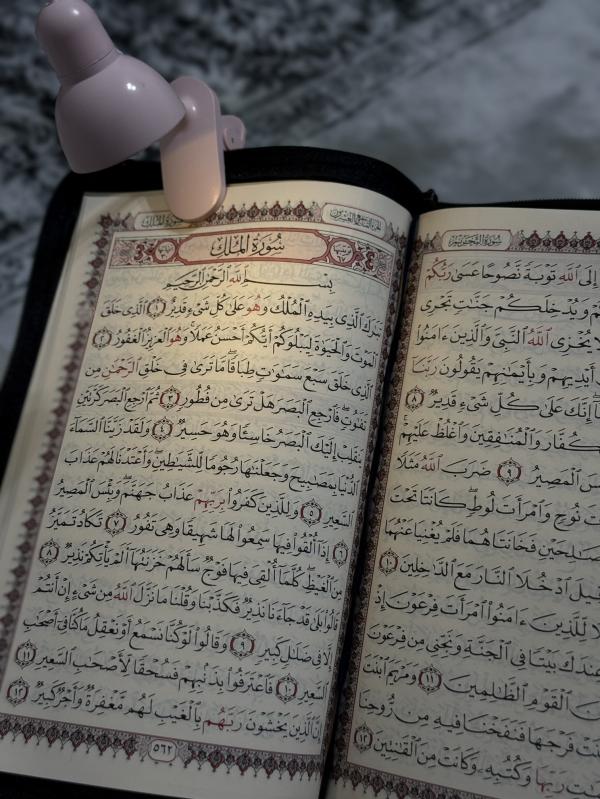 سُورَةُ التَّحْرِيمِ
إِلَى ٱللَّهِ تَوْبَةً نَّصُوحًا عَسَىٰ رَبُّكُمْ
وَيُدْخِلَكُمْ جَنَّٰتٍ تَجْرِى
لَا يُخْزِى ٱللَّهُ ٱلنَّبِىَّ وَٱلَّذِينَ ءَامَنُوا۟
أَيْدِيهِمْ وَبِأَيْمَٰنِهِمْ يَقُولُونَ رَبَّنَآ
إِنَّكَ عَلَىٰ كُلِّ شَىْءٍ قَدِيرٌ ٨
ٱلْكُفَّارَ وَٱلْمُنَٰفِقِينَ وَٱغْلُظْ عَلَيْهِمْ
ٱلْمَصِيرُ ٩ ضَرَبَ ٱللَّهُ مَثَلًا
نُوحٍ وَٱمْرَأَتَ لُوطٍ كَانَتَا تَحْتَ
صَٰلِحَيْنِ فَخَانَتَاهُمَا فَلَمْ يُغْنِيَا عَنْهُمَا
ٱدْخُلَا ٱلنَّارَ مَعَ ٱلدَّٰخِلِينَ ١٠
لِّلَّذِينَ ءَامَنُوا۟ ٱمْرَأَتَ فِرْعَوْنَ إِذْ
عِندَكَ بَيْتًا فِى ٱلْجَنَّةِ وَنَجِّنِى مِن فِرْعَوْنَ
ٱلْقَوْمِ ٱلظَّٰلِمِينَ ١١ وَمَرْيَمَ ٱبْنَتَ
فَرْجَهَا فَنَفَخْنَا فِيهِ مِن رُّوحِنَا
رَبِّهَا وَكُتُبِهِۦ وَكَانَتْ مِنَ ٱلْقَٰنِتِينَ ١٢
الجُزْءُ التَّاسِعُ وَالعِشْرُونَ
سُورَةُ المُلْكِ
سُورَةُ المُلْكِ
بِسْمِ ٱللَّهِ ٱلرَّحْمَٰنِ ٱلرَّحِيمِ
تَبَٰرَكَ ٱلَّذِى بِيَدِهِ ٱلْمُلْكُ وَهُوَ عَلَىٰ كُلِّ شَىْءٍ قَدِيرٌ ١ ٱلَّذِى خَلَقَ
ٱلْمَوْتَ وَٱلْحَيَوٰةَ لِيَبْلُوَكُمْ أَيُّكُمْ أَحْسَنُ عَمَلًا وَهُوَ ٱلْعَزِيزُ ٱلْغَفُورُ ٢
ٱلَّذِى خَلَقَ سَبْعَ سَمَٰوَٰتٍ طِبَاقًا مَّا تَرَىٰ فِى خَلْقِ ٱلرَّحْمَٰنِ مِن
تَفَٰوُتٍ فَٱرْجِعِ ٱلْبَصَرَ هَلْ تَرَىٰ مِن فُطُورٍ ٣ ثُمَّ ٱرْجِعِ ٱلْبَصَرَ كَرَّتَيْنِ
يَنقَلِبْ إِلَيْكَ ٱلْبَصَرُ خَاسِئًا وَهُوَ حَسِيرٌ ٤ وَلَقَدْ زَيَّنَّا ٱلسَّمَآءَ
ٱلدُّنْيَا بِمَصَٰبِيحَ وَجَعَلْنَٰهَا رُجُومًا لِّلشَّيَٰطِينِ وَأَعْتَدْنَا لَهُمْ عَذَابَ
ٱلسَّعِيرِ ٥ وَلِلَّذِينَ كَفَرُوا۟ بِرَبِّهِمْ عَذَابُ جَهَنَّمَ وَبِئْسَ ٱلْمَصِيرُ
٦ إِذَآ أُلْقُوا۟ فِيهَا سَمِعُوا۟ لَهَا شَهِيقًا وَهِىَ تَفُورُ ٧ تَكَادُ تَمَيَّزُ
مِنَ ٱلْغَيْظِ كُلَّمَآ أُلْقِىَ فِيهَا فَوْجٌ سَأَلَهُمْ خَزَنَتُهَآ أَلَمْ يَأْتِكُمْ نَذِيرٌ ٨
قَالُوا۟ بَلَىٰ قَدْ جَآءَنَا نَذِيرٌ فَكَذَّبْنَا وَقُلْنَا مَا نَزَّلَ ٱللَّهُ مِن شَىْءٍ إِنْ أَنتُمْ
إِلَّا فِى ضَلَٰلٍ كَبِيرٍ ٩ وَقَالُوا۟ لَوْ كُنَّا نَسْمَعُ أَوْ نَعْقِلُ مَا كُنَّا فِىٓ أَصْحَٰبِ
ٱلسَّعِيرِ ١٠ فَٱعْتَرَفُوا۟ بِذَنۢبِهِمْ فَسُحْقًا لِّأَصْحَٰبِ ٱلسَّعِيرِ ١١
إِنَّ ٱلَّذِينَ يَخْشَوْنَ رَبَّهُم بِٱلْغَيْبِ لَهُم مَّغْفِرَةٌ وَأَجْرٌ كَبِيرٌ ١٢
٥٦٢